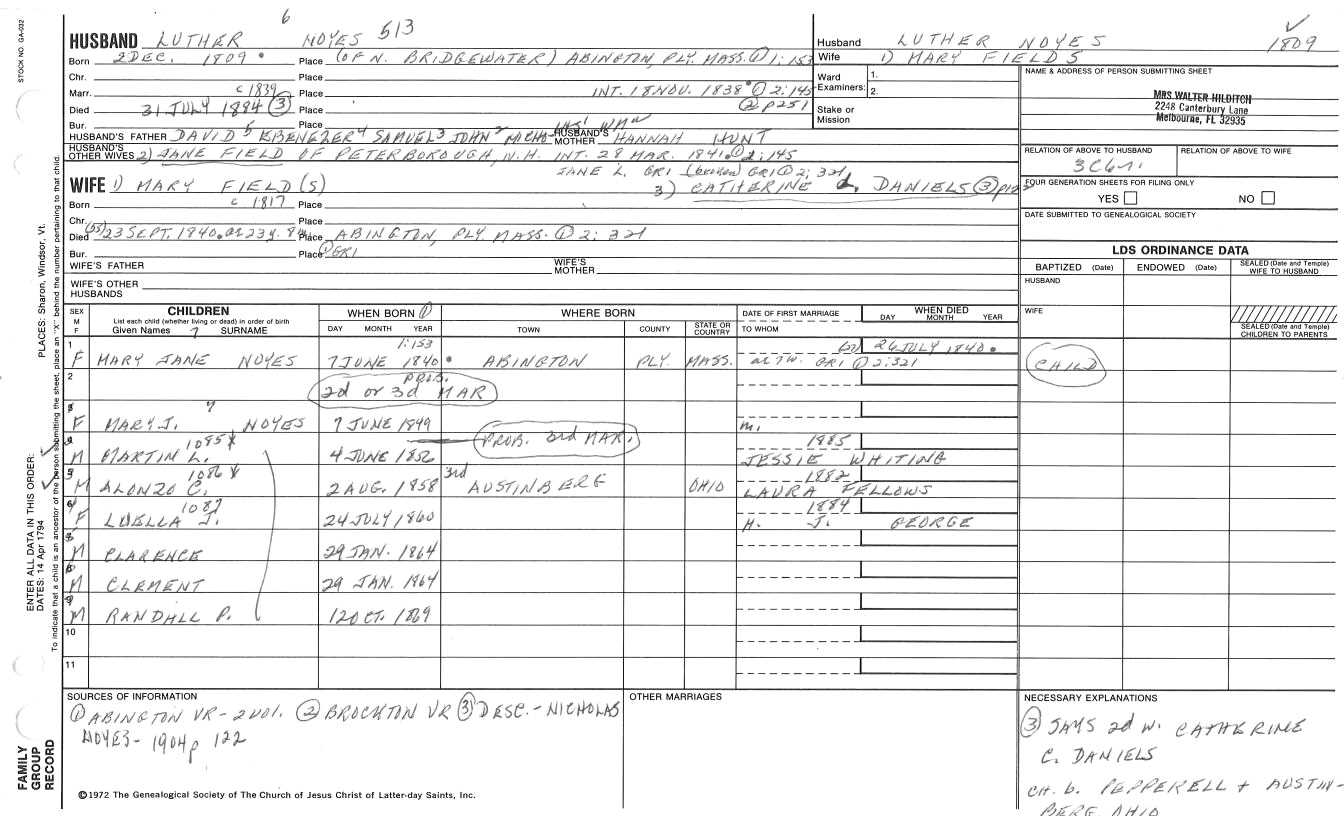 STOCK NO. GA-032
PLACES: Sharon, Windsor, Vt.
ENTER ALL DATA IN THIS ORDER:
DATES: 14 Apr 1794
To indicate that a child is an ancestor of the person submitting the sheet, place an "X" behind the number pertaining to that child.
FAMILY
GROUP
RECORD
HUSBAND LUTHER 6 NOYES 513
Born 2 DEC. 1809 Place (OF N. BRIDGEWATER) ABINGTON, PLY. MASS. ① 1:153
Chr. Place
Marr. c 1839 Place INT. 18 NOV. 1838 ① 2:145
Died 31 JULY 1884 ③ Place ② p251
Bur. Place
HUSBAND'S FATHER DAVID 5 EBENEZER 4 SAMUEL 3 JOHN 2 HUSBAND'S MOTHER HANNAH HUNT
HUSBAND'S OTHER WIVES 2) JANE FIELD OF PETERBOROUGH, N.H. INT. 28 MAR. 1841 ① 2:145
JANE L. GR1 (broken) GR1 ① 2:321
WIFE 1) MARY FIELD(S) 3) CATHERINE DANIELS ③
Born c 1817 Place
Chr. Place
Died 23 SEPT. 1840 Place ABINGTON, PLY. MASS. ① 2:321
Bur. Place GR1
WIFE'S FATHER WIFE'S MOTHER
WIFE'S OTHER HUSBANDS
Husband LUTHER NOYES 1809
Wife 1) MARY FIELDS
Ward 1.
Examiners: 2.
Stake or
Mission
NAME & ADDRESS OF PERSON SUBMITTING SHEET
MRS WALTER HILDITCH
2248 Canterbury Lane
Melbourne, FL 32935
RELATION OF ABOVE TO HUSBAND RELATION OF ABOVE TO WIFE
FOUR GENERATION SHEETS FOR FILING ONLY
YES NO
DATE SUBMITTED TO GENEALOGICAL SOCIETY
LDS ORDINANCE DATA
BAPTIZED (Date) ENDOWED (Date) SEALED (Date and Temple) WIFE TO HUSBAND
HUSBAND
WIFE
SEALED (Date and Temple) CHILDREN TO PARENTS
SEX M F CHILDREN WHEN BORN ① WHERE BORN DATE OF FIRST MARRIAGE WHEN DIED
List each child (whether living or dead) in order of birth
Given Names 7 SURNAME DAY MONTH YEAR TOWN COUNTY STATE OR COUNTRY TO WHOM DAY MONTH YEAR
1 1:153 26 JULY 1840
F MARY JANE NOYES 7 JUNE 1840 ABINGTON PLY MASS. GR1 ① 2:321 CHILD
2 PROB.
2d or 3d MAR
7
F MARY J. NOYES 7 JUNE 1849 m.
1085 PROB. 3rd MAR. 1885
M MARTIN L. 4 JUNE 1856 JESSIE WHITING
1086 3rd 1882
M ALONZO C. 2 AUG. 1858 AUSTINBERG OHIO LAURA FELLOWS
1087 1884
F LUELLA J. 24 JULY 1860 H. J. GEORGE
M CLARENCE 29 JAN. 1864
M CLEMENT 29 JAN. 1864
M RANDALL P. 12 OCT. 1869
10
11
SOURCES OF INFORMATION
① ABINGTON VR - 2 VOl. ② BROCKTON VR ③ DESC. - NICHOLAS
NOYES - 1904 p 122
OTHER MARRIAGES
NECESSARY EXPLANATIONS
③ SAYS 2d W. CATHERINE
C. DANIELS
CH. b. PEPPERELL + AUSTIN-
BERG, OHIO
©1972 The Genealogical Society of The Church of Jesus Christ of Latter-day Saints, Inc.